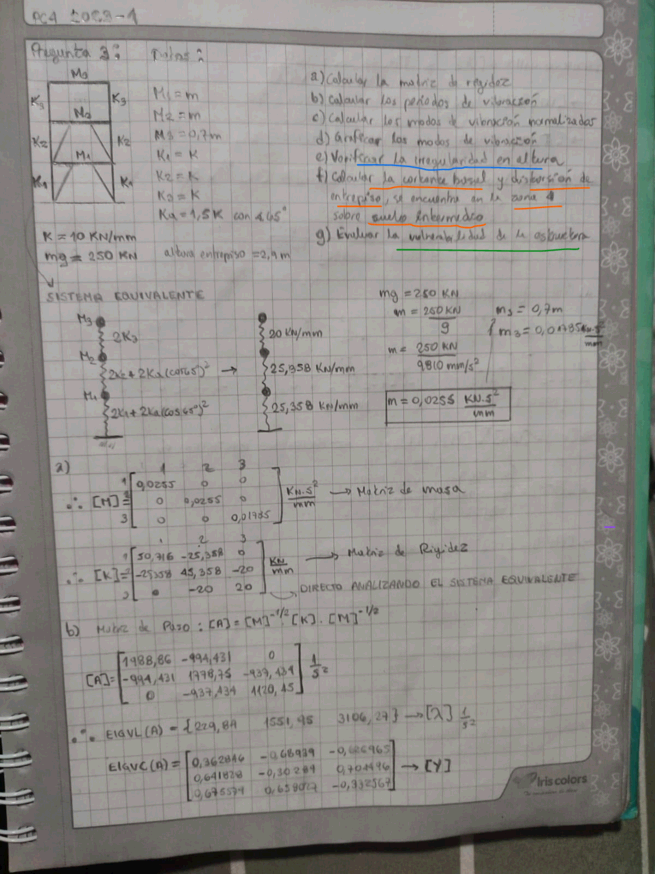 PC4 2023-1
Pregunta 3:
Datos:
M3
K3 K3
M2
K2 K2
M1
K1 K1
M1 = m
M2 = m
M3 = 0,7m
K1 = K
K2 = K
K3 = K
Ka = 1,5K con 45°
K = 10 KN/mm
mg = 250 KN altura entrepiso = 2,4m
a) Calcular la matriz de rigidez
b) Calcular los periodos de vibración
c) Calcular los modos de vibración normalizados
d) Graficar los modos de vibración
e) Verificar la irregularidad en altura
f) Calcular la cortante basal y distorsión de
entrepiso, se encuentra en la zona 4
sobre suelo Intermedio
g) Evaluar la vulnerabilidad de la estructura
SISTEMA EQUIVALENTE
M3
2K3
M2
2K2 + 2Ka(cos45)²
M1
2K1 + 2Ka(cos45°)²
20 KN/mm
25,358 KN/mm
25,358 KN/mm
mg = 250 KN
m = 250 KN / g
m = 250 KN / 9810 mm/s²
m = 0,0255 KN.s²/mm
m3 = 0,7m
m3 = 0,01785 KN.s²/mm
a)
1 2 3
∴ [M] =
1 0,0255 0 0
2 0 0,0255 0
3 0 0 0,01785
KN.s²/mm → Matriz de masa
1 2 3
∴ [K] =
1 50,716 -25,358 0
2 -25,358 45,358 -20
3 0 -20 20
KN/mm → Matriz de Rigidez
DIRECTO ANALIZANDO EL SISTEMA EQUIVALENTE
b) Matriz de Paso : [A] = [M]^-1/2 [K] . [M]^-1/2
[A] =
1988,86 -994,431 0
-994,431 1778,75 -937,434
0 -937,434 1120,45
1/s²
∴ EIGVL(A) = {229,84 1551,95 3106,27} → [λ] 1/s²
EIGVC(A) =
0,362846 -0,68939
0,641828 -0,30289 0,704496
0,675574 0,658027 -0,332567
→ [Y]
Iris colors